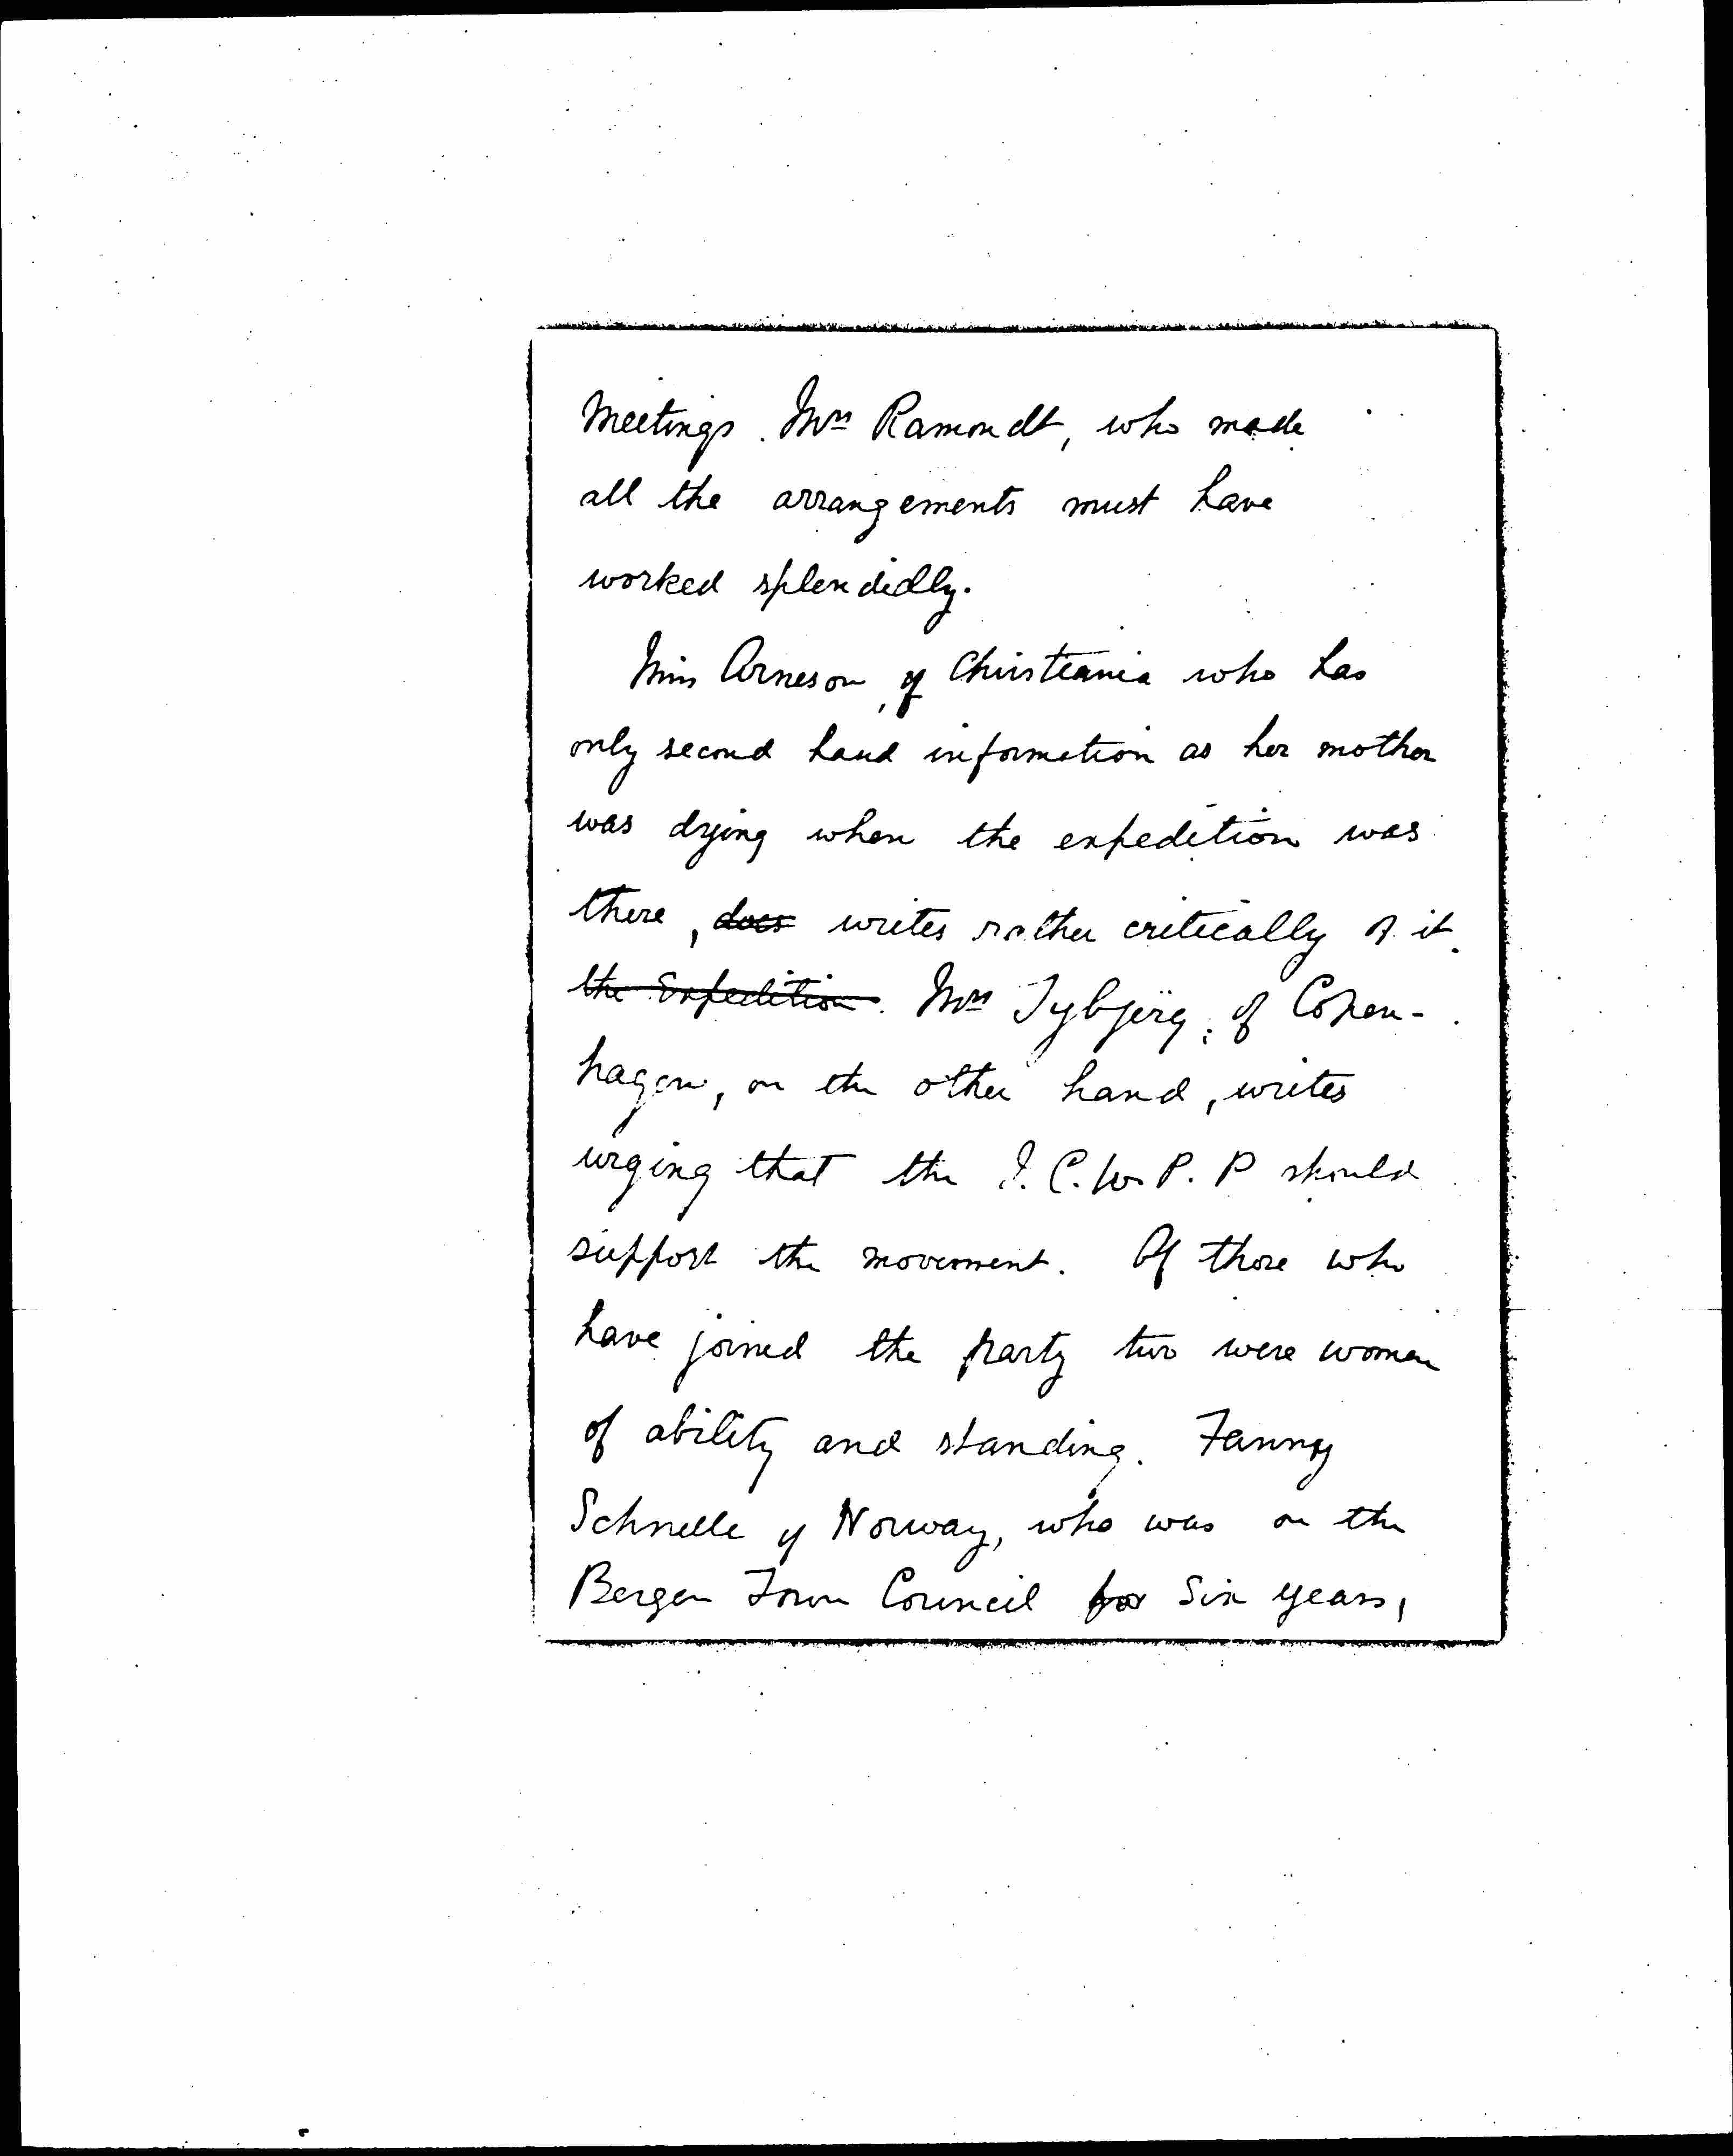 Meetings. Mrs Ramondt, who made
all the arrangements must have
worked splendidly.
Miss Arneson, of Christiania who has
only second hand information as her mother
was dying when the expedition was
there, does writes rather critically of it.
the Expedition. Mrs Tybjerg, of Copen-
hagen, on the other hand, writes
urging that the I.C.W.P.P should
support the movement. Of those who
have joined the party two were women
of ability and standing. Fanny
Schnelle of Norway, who was on the
Bergen Town Council for Six years,